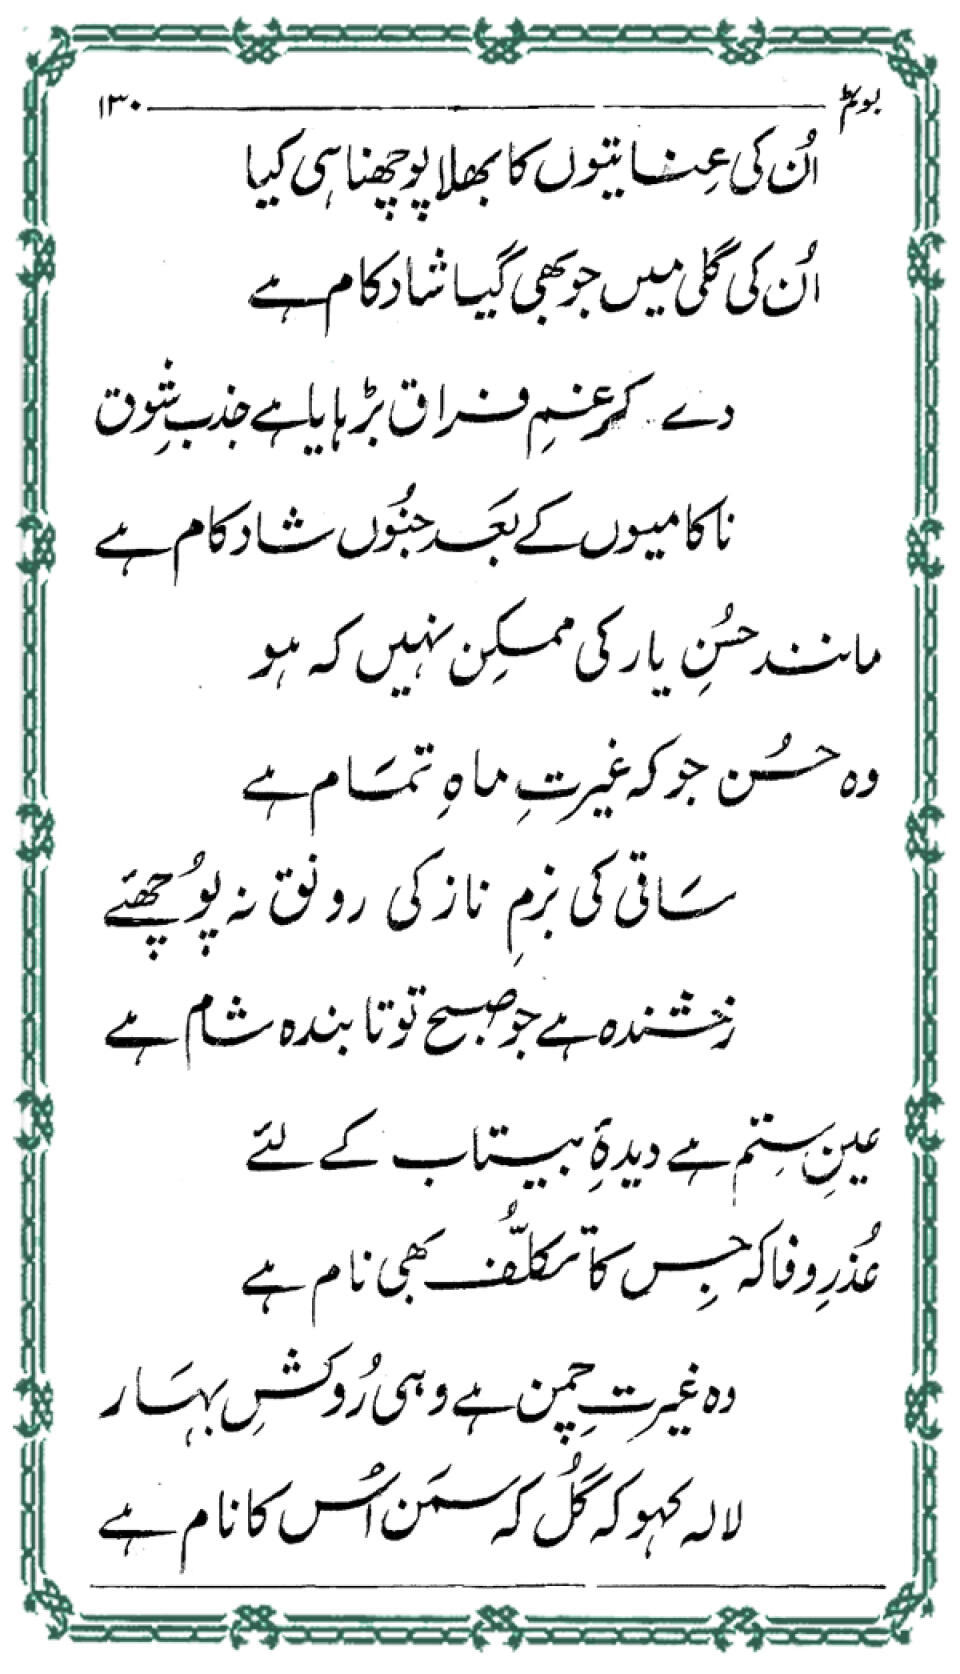 بوئے گل ۱۳۰
اُن کی عِنایتوں کا بھلا پوچھنا ہی کیا
اُن کی گلی میں جو بھی گیا شاد کام ہے
دے کر غمِ فراق بڑہایا ہے جذبِ شوق
ناکامیوں کے بعَد جنُوں شاد کام ہے
مانند حسُنِ یار کی ممکِن نہیں کہ ہو
وہ حسُن جو کہ غیرتِ ماہِ تمَام ہے
سَاقی کی بزمِ ناز کی رونق نہ پُوچھئے
رخشندہ ہے جو صبح تو تابندہ شام ہے
عینِ ستِم ہے دیدۂِ بیتاب کے لئے
عُذرِ وفا کہ جِس کا تکلُّف بھی نام ہے
وہ غیرتِ چمِن ہے وہی رُوکشِ بہَار
لالہ کہو کہ گُل کہ سمَن اُس کا نام ہے